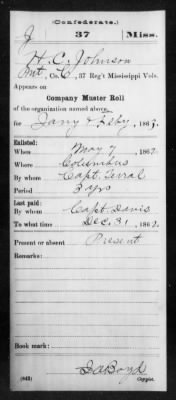 (Confederate.)
J 37 Miss.
H. C. Johnson
Pvt, Co. C, 37 Reg't Mississippi Vols.
Appears on
Company Muster Roll
of the organization named above,
for Jany & Feby, 1863.
Enlisted:
When May 7, 1862.
Where Columbus
By whom Capt. Terral
Period 3 yrs
Last paid:
By whom Capt. Davis
To what time Dec. 31, 1862.
Present or absent Present
Remarks:
Book mark:
(642)
Copyist.